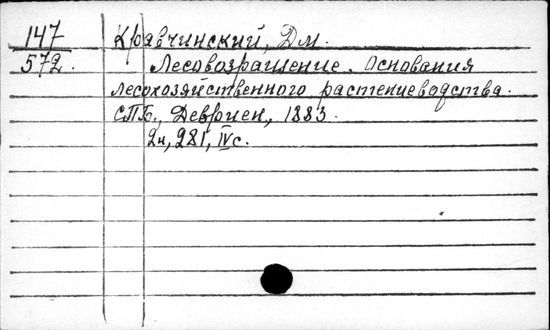 147 Кравчинский, Дм.
572. Лесовозращение. Основания
лесохозяйственного растениеводства.
СПБ., Девриен, 1883.
2н, 281, IV с.